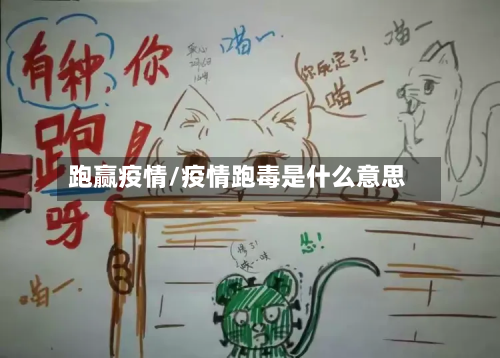 有种,你
跑!
呀
喵一
喵一
你死定了!
喵一
跑赢疫情/疫情跑毒是什么意思
喵一
怂!